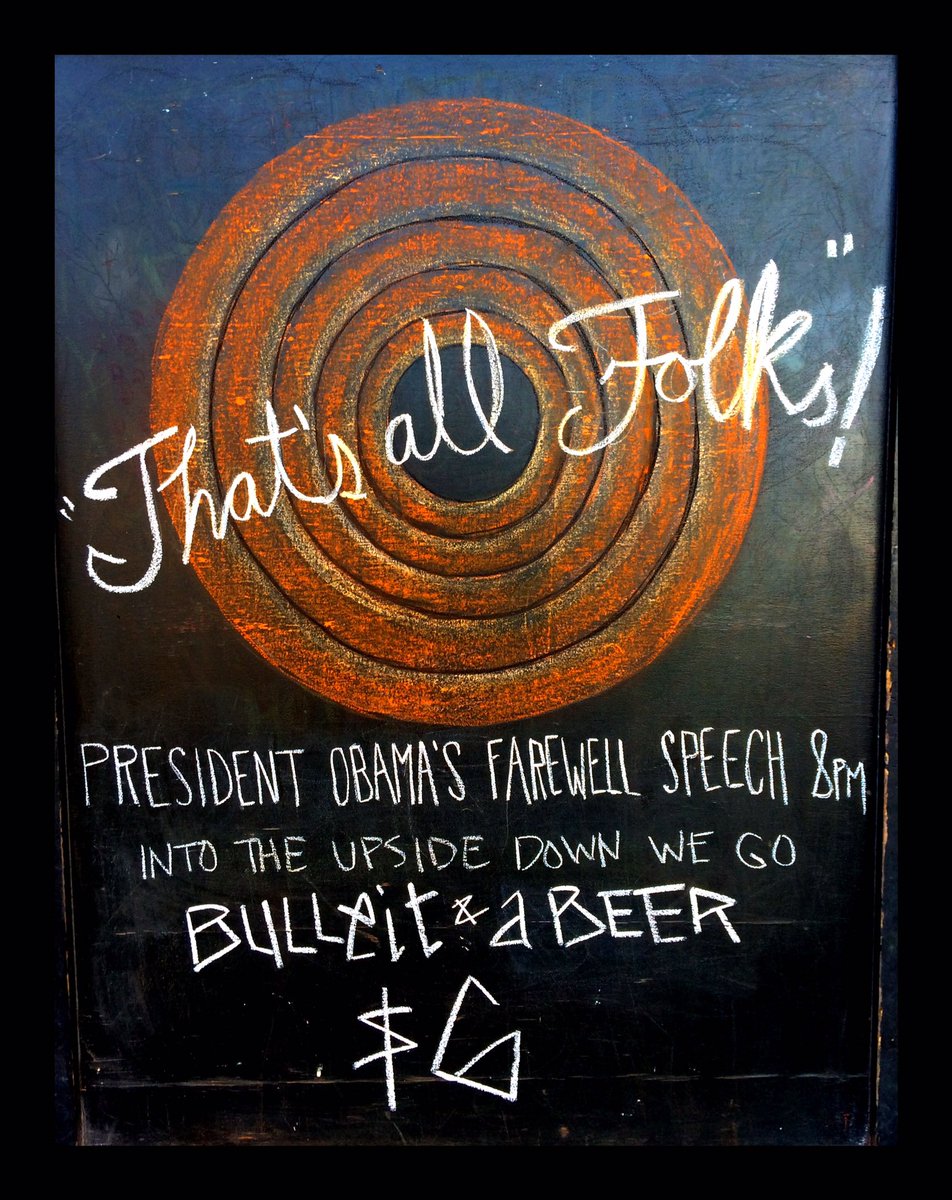 "That's all Folks!"
PRESIDENT OBAMA'S FAREWELL SPEECH 8PM
INTO THE UPSIDE DOWN WE GO
BULLEIT & A BEER
$6